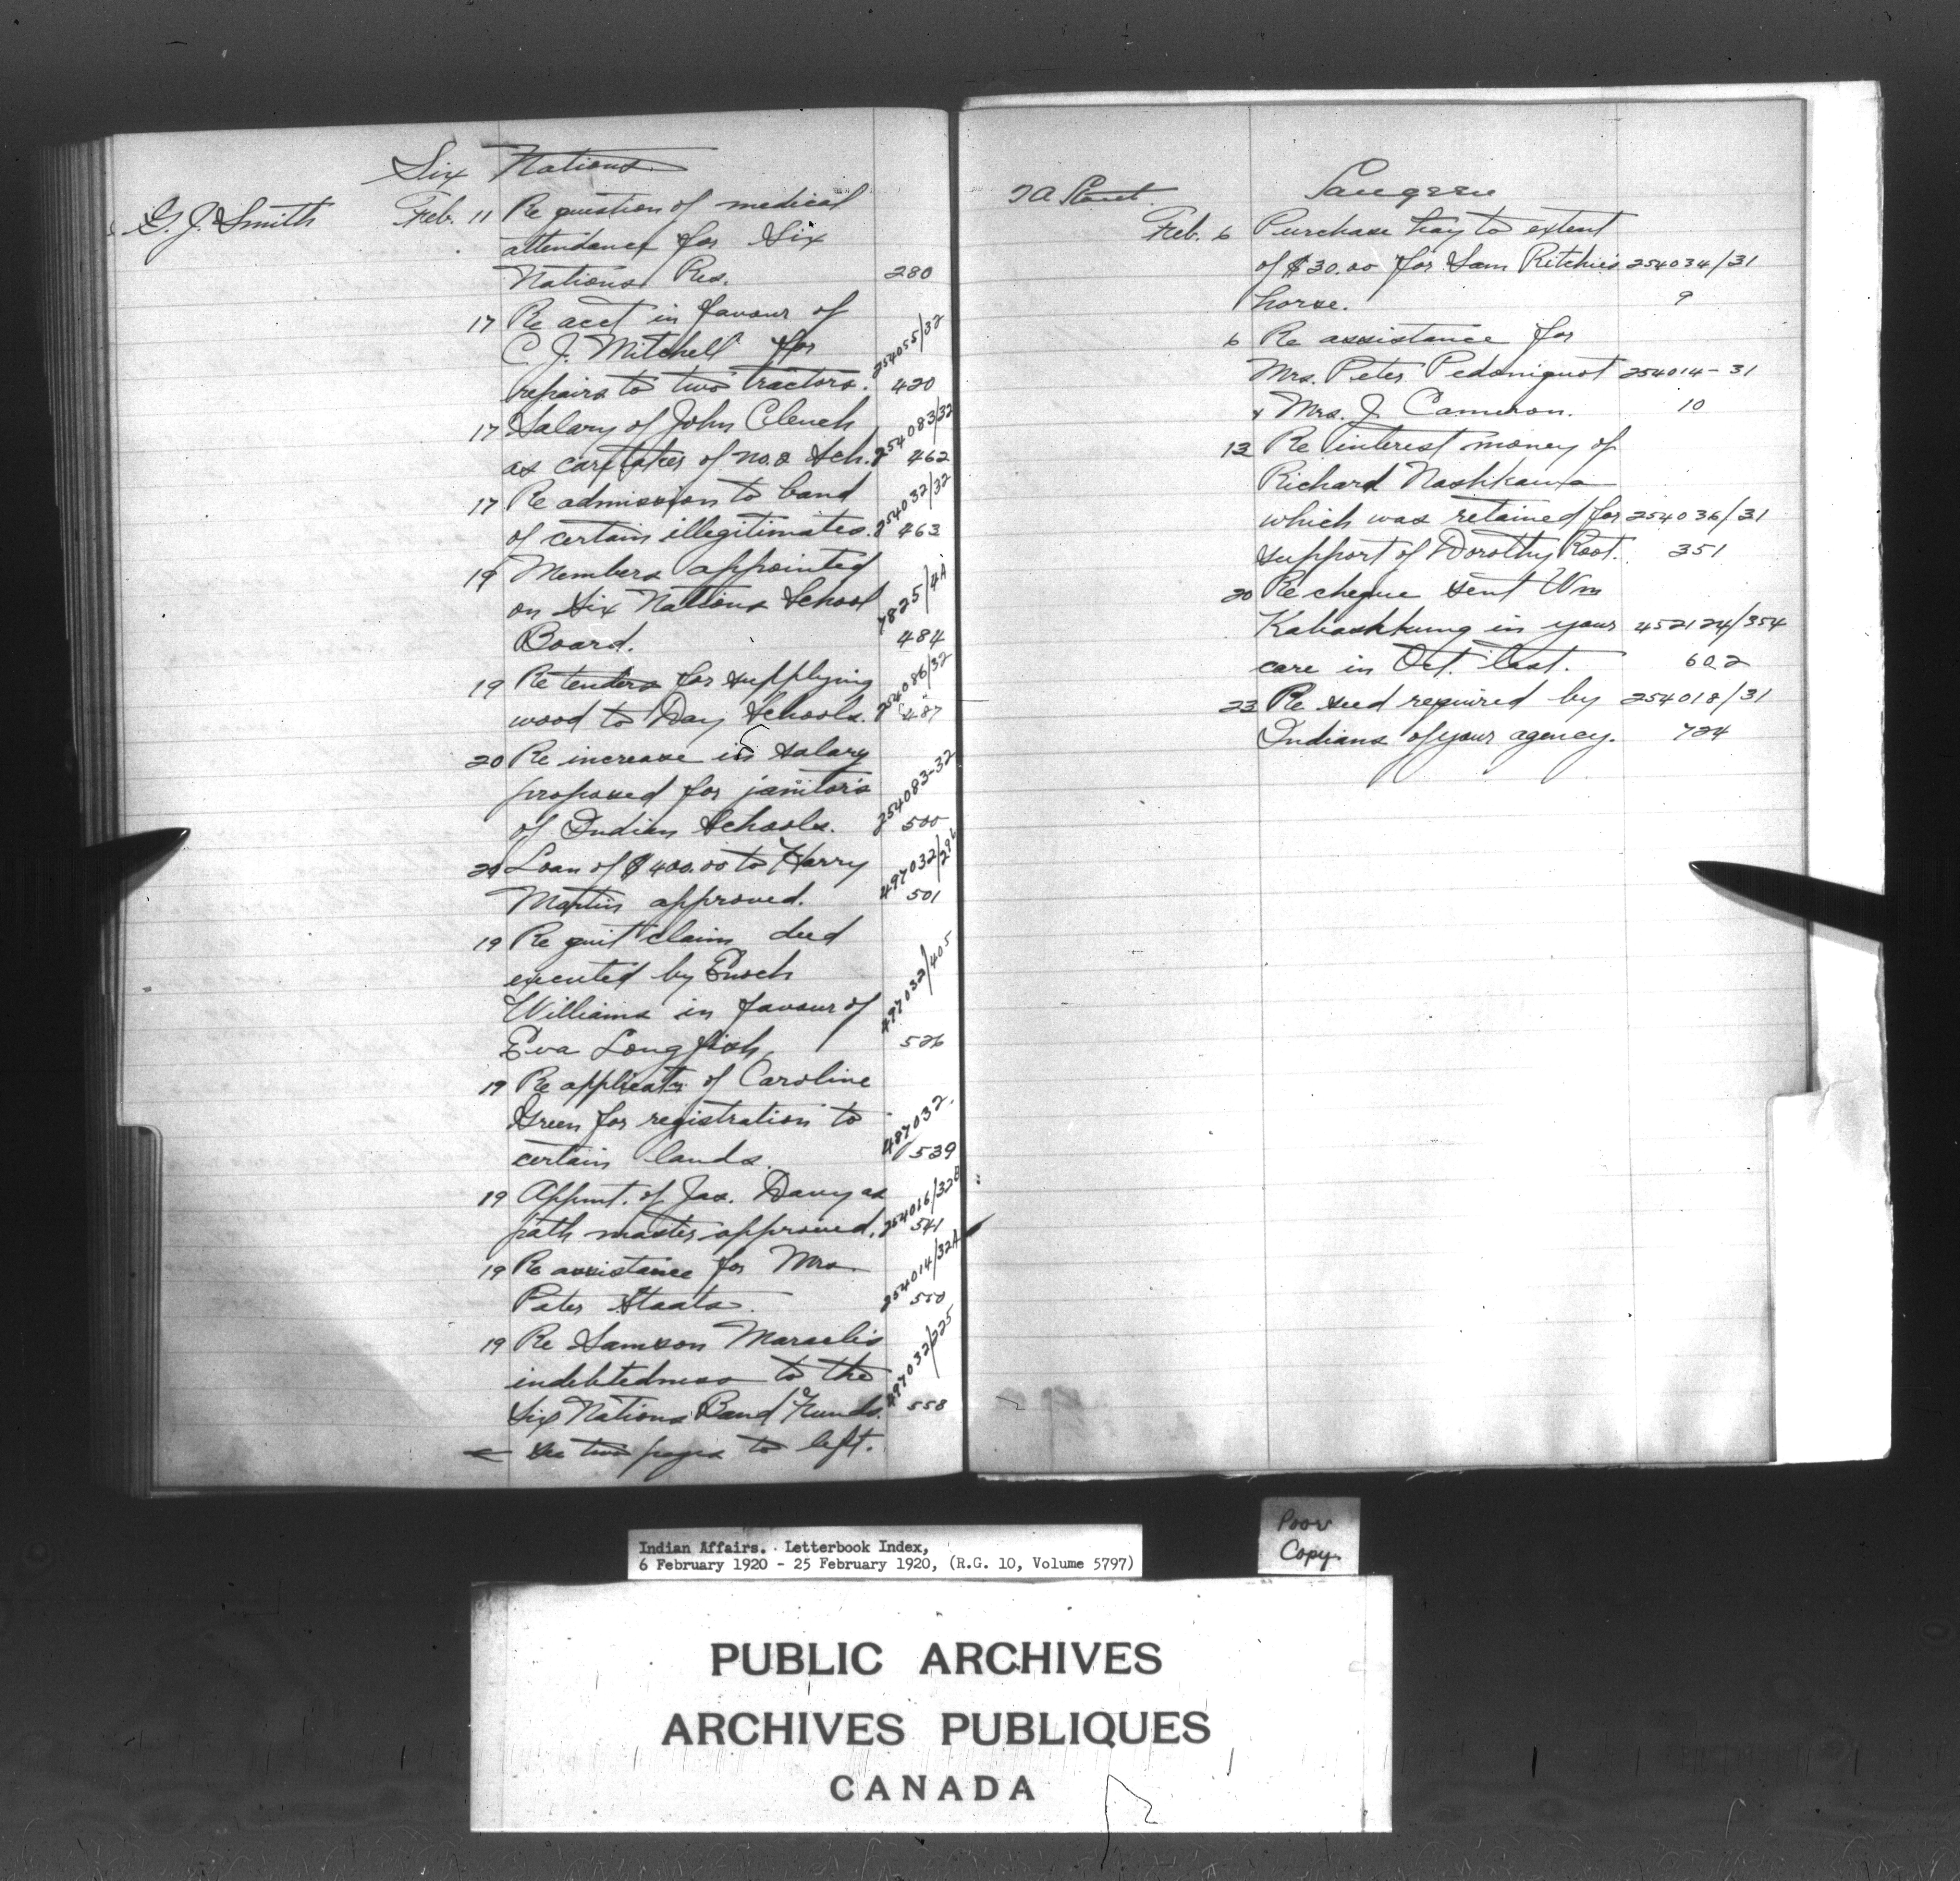 Six Nations
G. J. Smith Feb. 11 Re question of medical
attendance for Six
Nations Res. 280
17 Re acct in favour of
C. J. Mitchell for 254055/32
repairs to two tractors. 420
17 Salary of John Clench 254083/32
as caretaker of No. 2 Sch. 462
17 Re admission to band 254032/32
of certain illegitimates. 463
19 Members appointed
on Six Nations School 7825/4A
Board. 484
19 Re tenders for supplying 254086/32
wood to Day Schools. 487
20 Re increase in salary
proposed for janitors 254083-32
of Indian Schools. 500
20 Loan of $400.00 to Harry 497032/296
Martin approved. 501
19 Re quit claim deed
executed by Enoch
Williams in favour of 497032/405
Eva Longfish 526
19 Re applicatn of Caroline
Green for registration to 487032.
certain lands. 539
19 Appmt. of Jas. Davy as 254016/32B
path master approved. 541
19 Re assistance for Mrs 254014/32A
Peter Staats. 550
19 Re Samson Maracle's
indebtedness to the 497032/225
Six Nations Band Funds. 558
← See two pages to left.
T A Stout. Saugeen
Feb. 6 Purchase hay to extent
of $30.00 for Sam Ritchie's 254034/31
horse. 9
6 Re assistance for
Mrs. Peter Pedoniquot 254014-31
& Mrs. J. Cameron. 10
13 Re interest money of
Richard Nashkawa
which was retained for 254036/31
support of Dorothy Root. 351
20 Re cheque sent Wm
Kabashkung in your 452124/354
care in Oct. last. 602
23 Re seed required by 254018/31
Indians of your agency. 724
Poor
Copy.
Indian Affairs. Letterbook Index,
6 February 1920 - 25 February 1920, (R.G. 10, Volume 5797)
PUBLIC ARCHIVES
ARCHIVES PUBLIQUES
CANADA